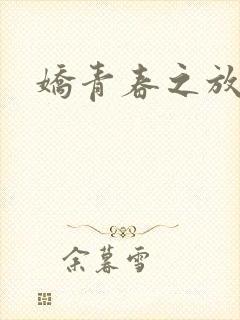 嬌青春之放
余暮雪